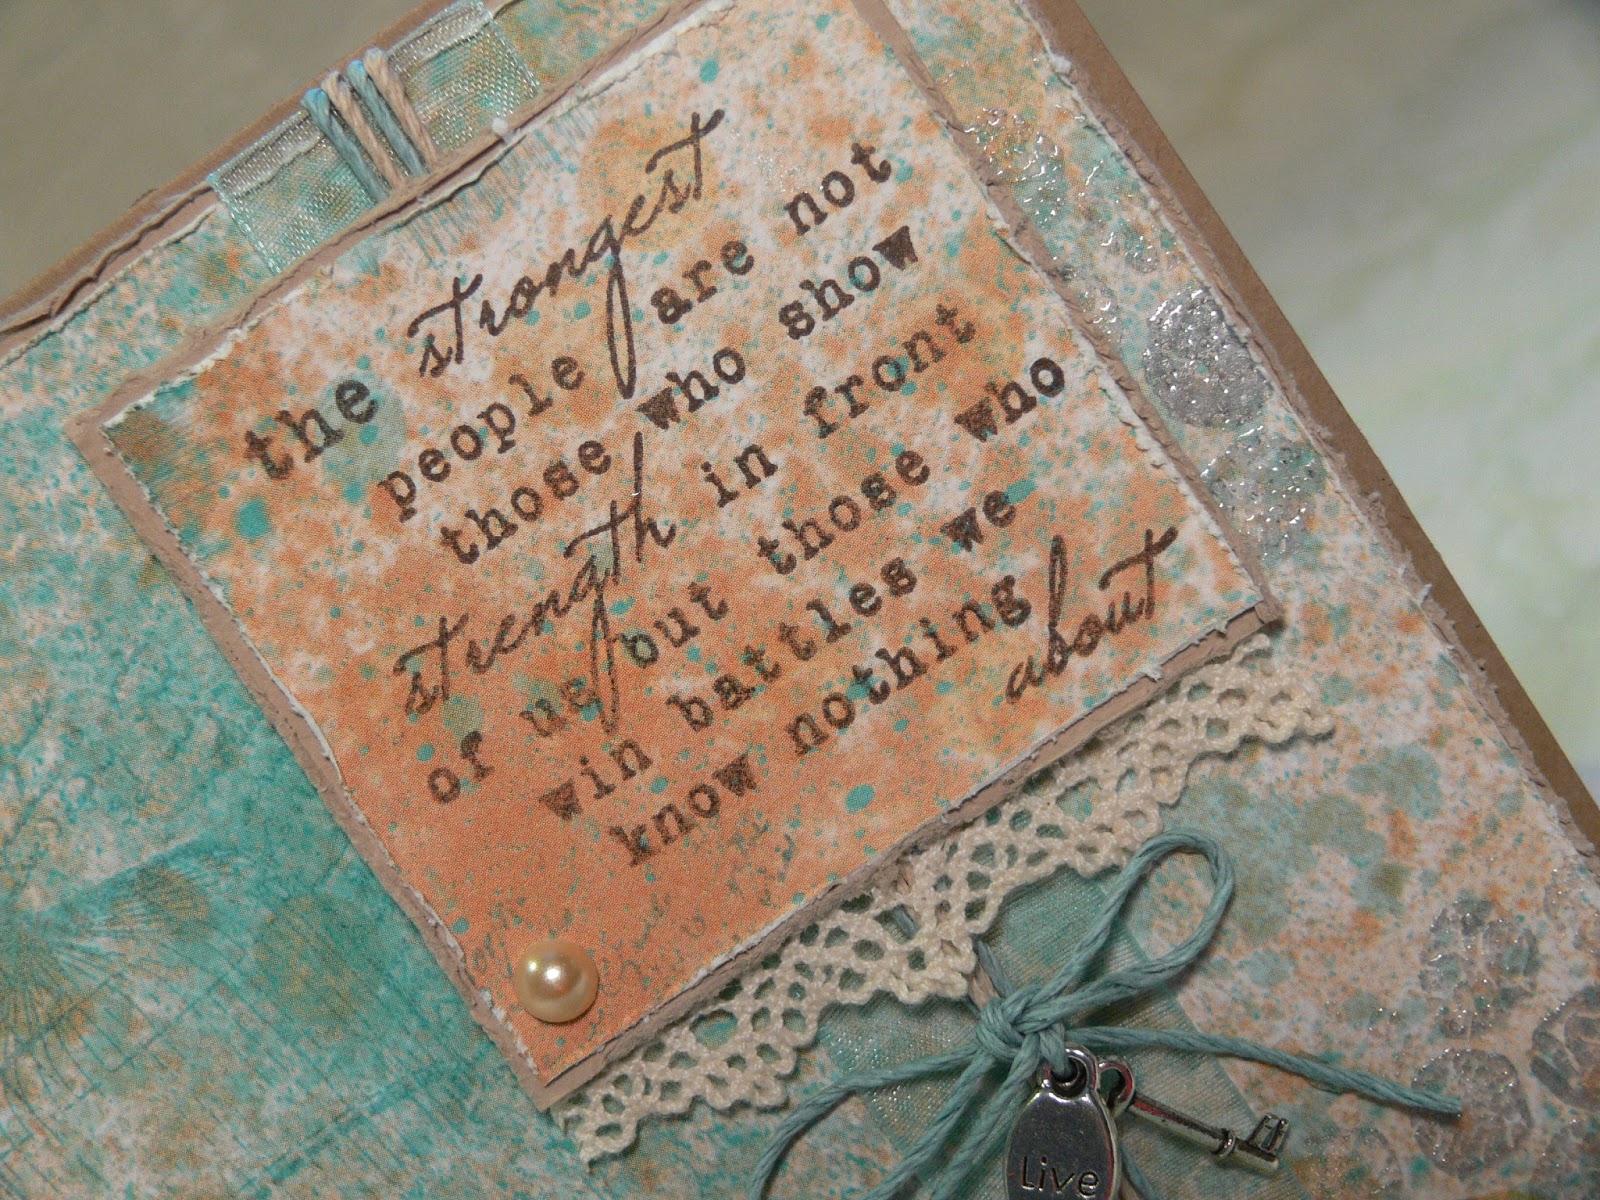 the strongest
people are not
those who show
strength in front
of us but those who
win battles we
know nothing
about
Live